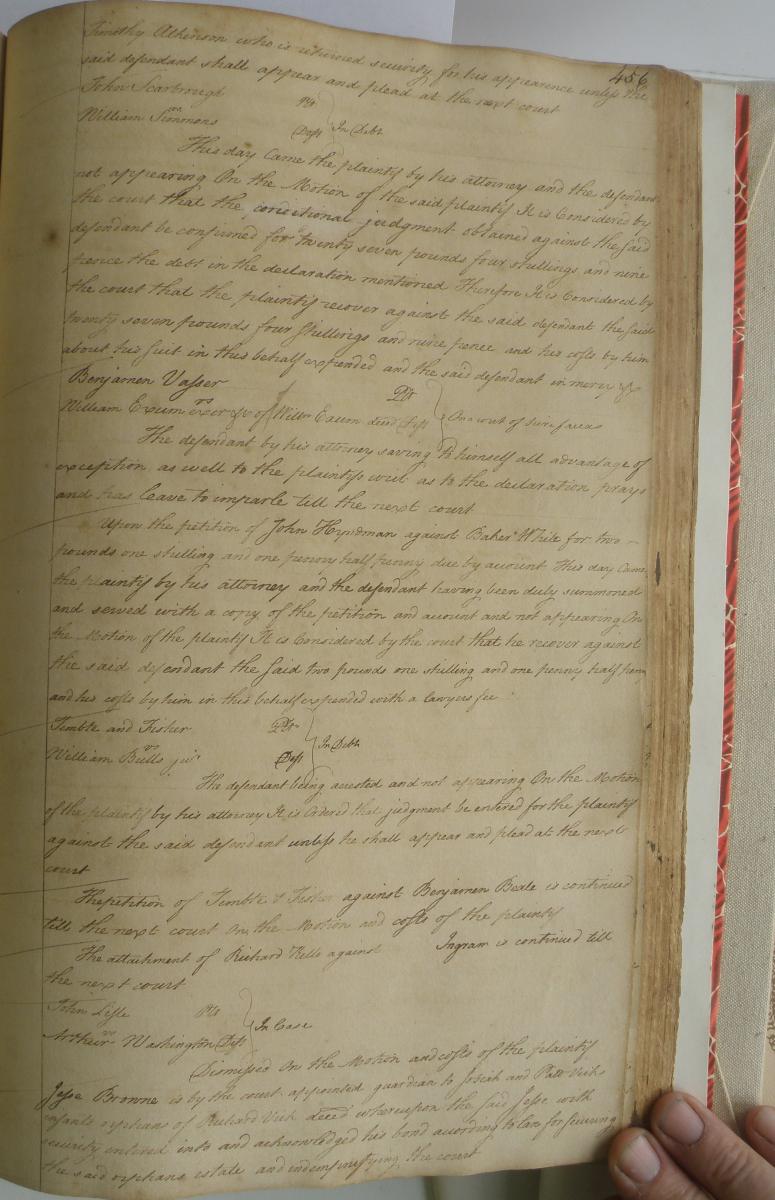 456
Timothy Atkinson who is returned security for his appearence unless the
said defendant shall appear and plead at the next court
John Scarbrough Plt
vs } In Debt
William Simmons Deft
This day Came the plaintif by his attorney and the defendant
not appearing On the Motion of the said plaintif It is Considered by
the court that the conditional judgment obtained against the said
defendant be confirmed for twenty seven pounds four shillings and nine
pence the debt in the declaration mentioned Therefore It is Considered by
the court that the plaintif recover against the said defendant the said
twenty seven pounds four shillings and nine pence and his costs by him
about his suit in this behalf expended and the said defendant in mercy &c
Benjamen Vasser Plt
vs } On a writ of scire facias
William Exum exer &c of Willm Exum decd Deft
The defendant by his attorney saving to himself all advantage of
exception as well to the plaintifs writ as to the declaration prays
and has leave to imparle till the next court
Upon the petition of John Hyndman against Baker White for two
pounds one shilling and one penny half penny due by account This day Came
the plaintif by his attorney and the defendant having been duly summoned
and served with a copy of the petition and account and not appearing On
the Motion of the plaintif It is Considered by the court that he recover against
the said defendant the said two pounds one shilling and one penny half penny
and his costs by him in this behalf expended with a lawyers fee
and Fisher Plt
vs } In Debt
William Bulls junr Deft
The defendant being arrested and not appearing On the Motion
of the plaintif by his attorney It is Ordered that judgment be entered for the plaintif
against the said defendant unless he shall appear and plead at the next
court
The petition of & Fisher against Benjamen Beale is continued
till the next court On the Motion and costs of the plaintif
The attachment of Richard Kello against Ingram is continued till
the next court
John Plt
vs } In Case
Arthur Washington Deft
Dismissed On the Motion and costs of the plaintif
Jesse Browne is by the court appointed guardian to Josiah and
infants orphans of Richard decd whereupon the said Jesse with
security entered into and acknowledged his bond according to law for securing
the said orphans estate and indemnifying the court